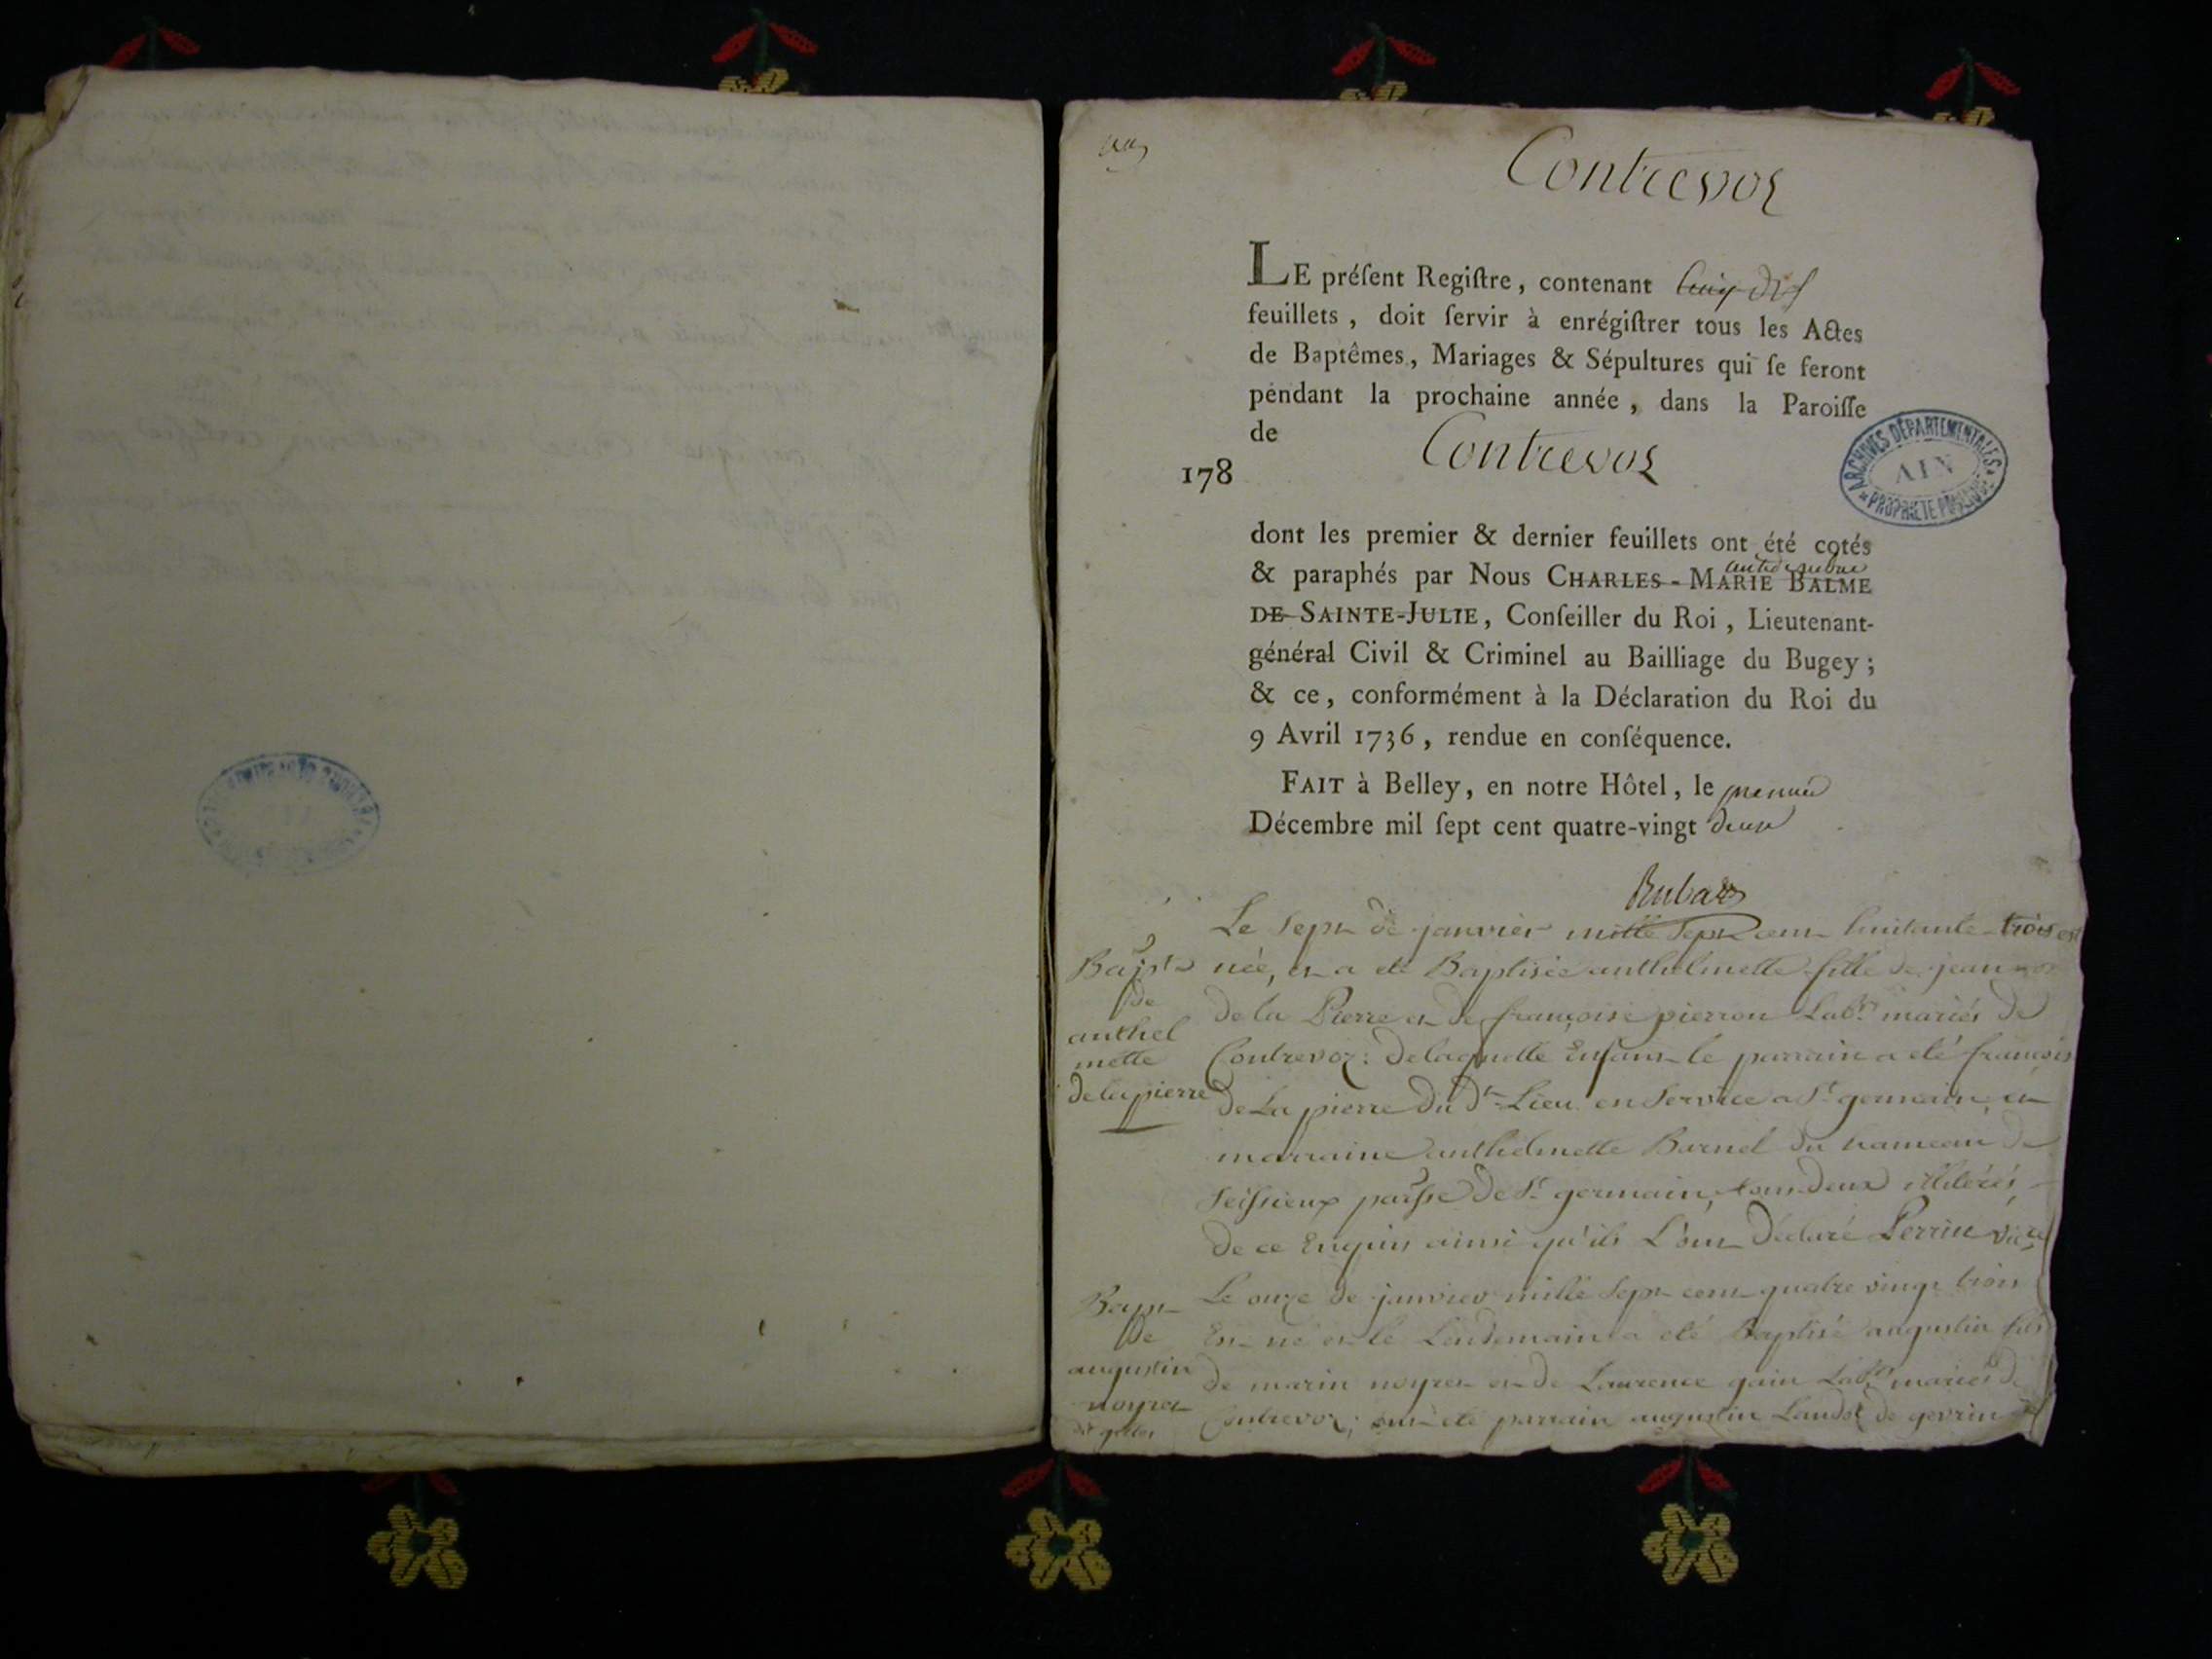 Contrevoz
LE préſent Regiſtre, contenant
feuillets, doit ſervir à enrégiſtrer tous les Actes
de Baptêmes, Mariages & Sépultures qui ſe feront
pendant la prochaine année, dans la Paroiſſe
de Contrevoz
178
ARCHIVES DÉPARTEMENTALES
AIN
PROPRIÉTÉ PUBLIQUE
dont les premier & dernier feuillets ont été cotés
& paraphés par Nous CHARLES-MARIE BALME
DE SAINTE-JULIE, Conſeiller du Roi, Lieutenant-
général Civil & Criminel au Bailliage du Bugey;
& ce, conformément à la Déclaration du Roi du
9 Avril 1736, rendue en conſéquence.
FAIT à Belley, en notre Hôtel, le premier
Décembre mil ſept cent quatre-vingt deux
Le sept de janvier mille sept cent huitante trois est
née, et a été Baptisée anthelmette fille de jean
de la Pierre et de françoise pierron Labrs mariés de
Contrevoz: delaquelle Enfant le parrain a été françois
de La pierre du dt Lieu en Service a St germain, et
marraine anthelmette Burnel du hameau de
Seissieux parsse de St germain, tous deux illiterés
de ce Enquis ainsi qu'ils L'ont Déclaré Perrin vicre
Bapte
de
anthel
mette
delapierre
Le onze de janvier mille sept cent quatre vingt trois
Est né et le Lendemain a été Baptisé augustin fils
de marin noyret et de Laurence gain Labrs mariés de
Contrevoz; ont été parrain augustin Landoz de gevrin
Bapt
de
augustin
noyret